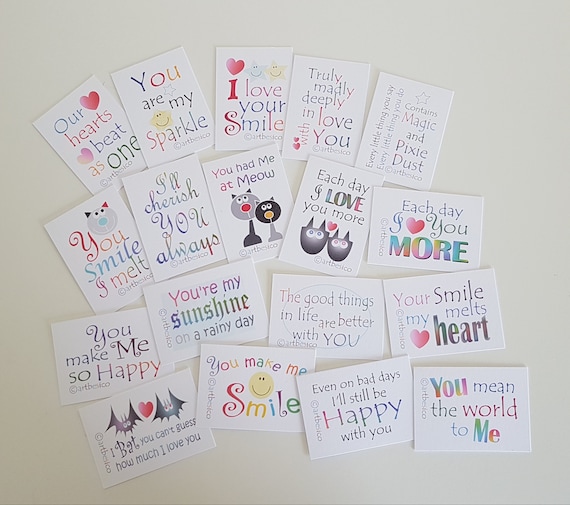 Our
hearts
beat
as one
©artbesco
You
are my
Sparkle
©artbesco
I love
your
Smile
©artbesco
Truly
madly
deeply
in love
with
You
©artbesco
Every little thing you say
Every little thing you do
Contains
Magic
and
Pixie
Dust
©artbesco
You
Smile
I melt
©artbesco
I'll
cherish
YOU
always
©artbesco
You had Me
at Meow
©artbesco
Each day
I LOVE
you more
©artbesco
Each day
I You
MORE
©artbesco
You're my
sunshine
on a rainy day
©artbesco
The good things
in life are better
with YOU
©artbesco
Your Smile
melts
my heart
©artbesco
You
make Me
so Happy
©artbesco
You make me
Smile
©artbesco
Even on bad days
I'll still be
Happy
with you
©artbesco
You mean
the world
to Me
©artbesco
I Bat you can't guess
how much I love you
©artbesco